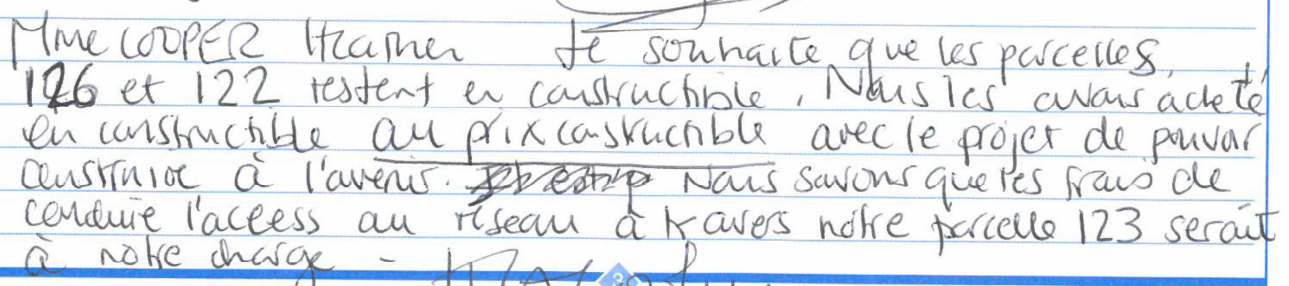 Mme COOPER Heather Je souhaite que les parcelles
126 et 122 restent en constructible. Nous les avons acheté
en constructible au prix constructible avec le projet de pouvoir
construire à l'avenir. Nous savons que les frais de
conduire l'access au réseau à travers notre parcelle 123 serait
à notre charge -